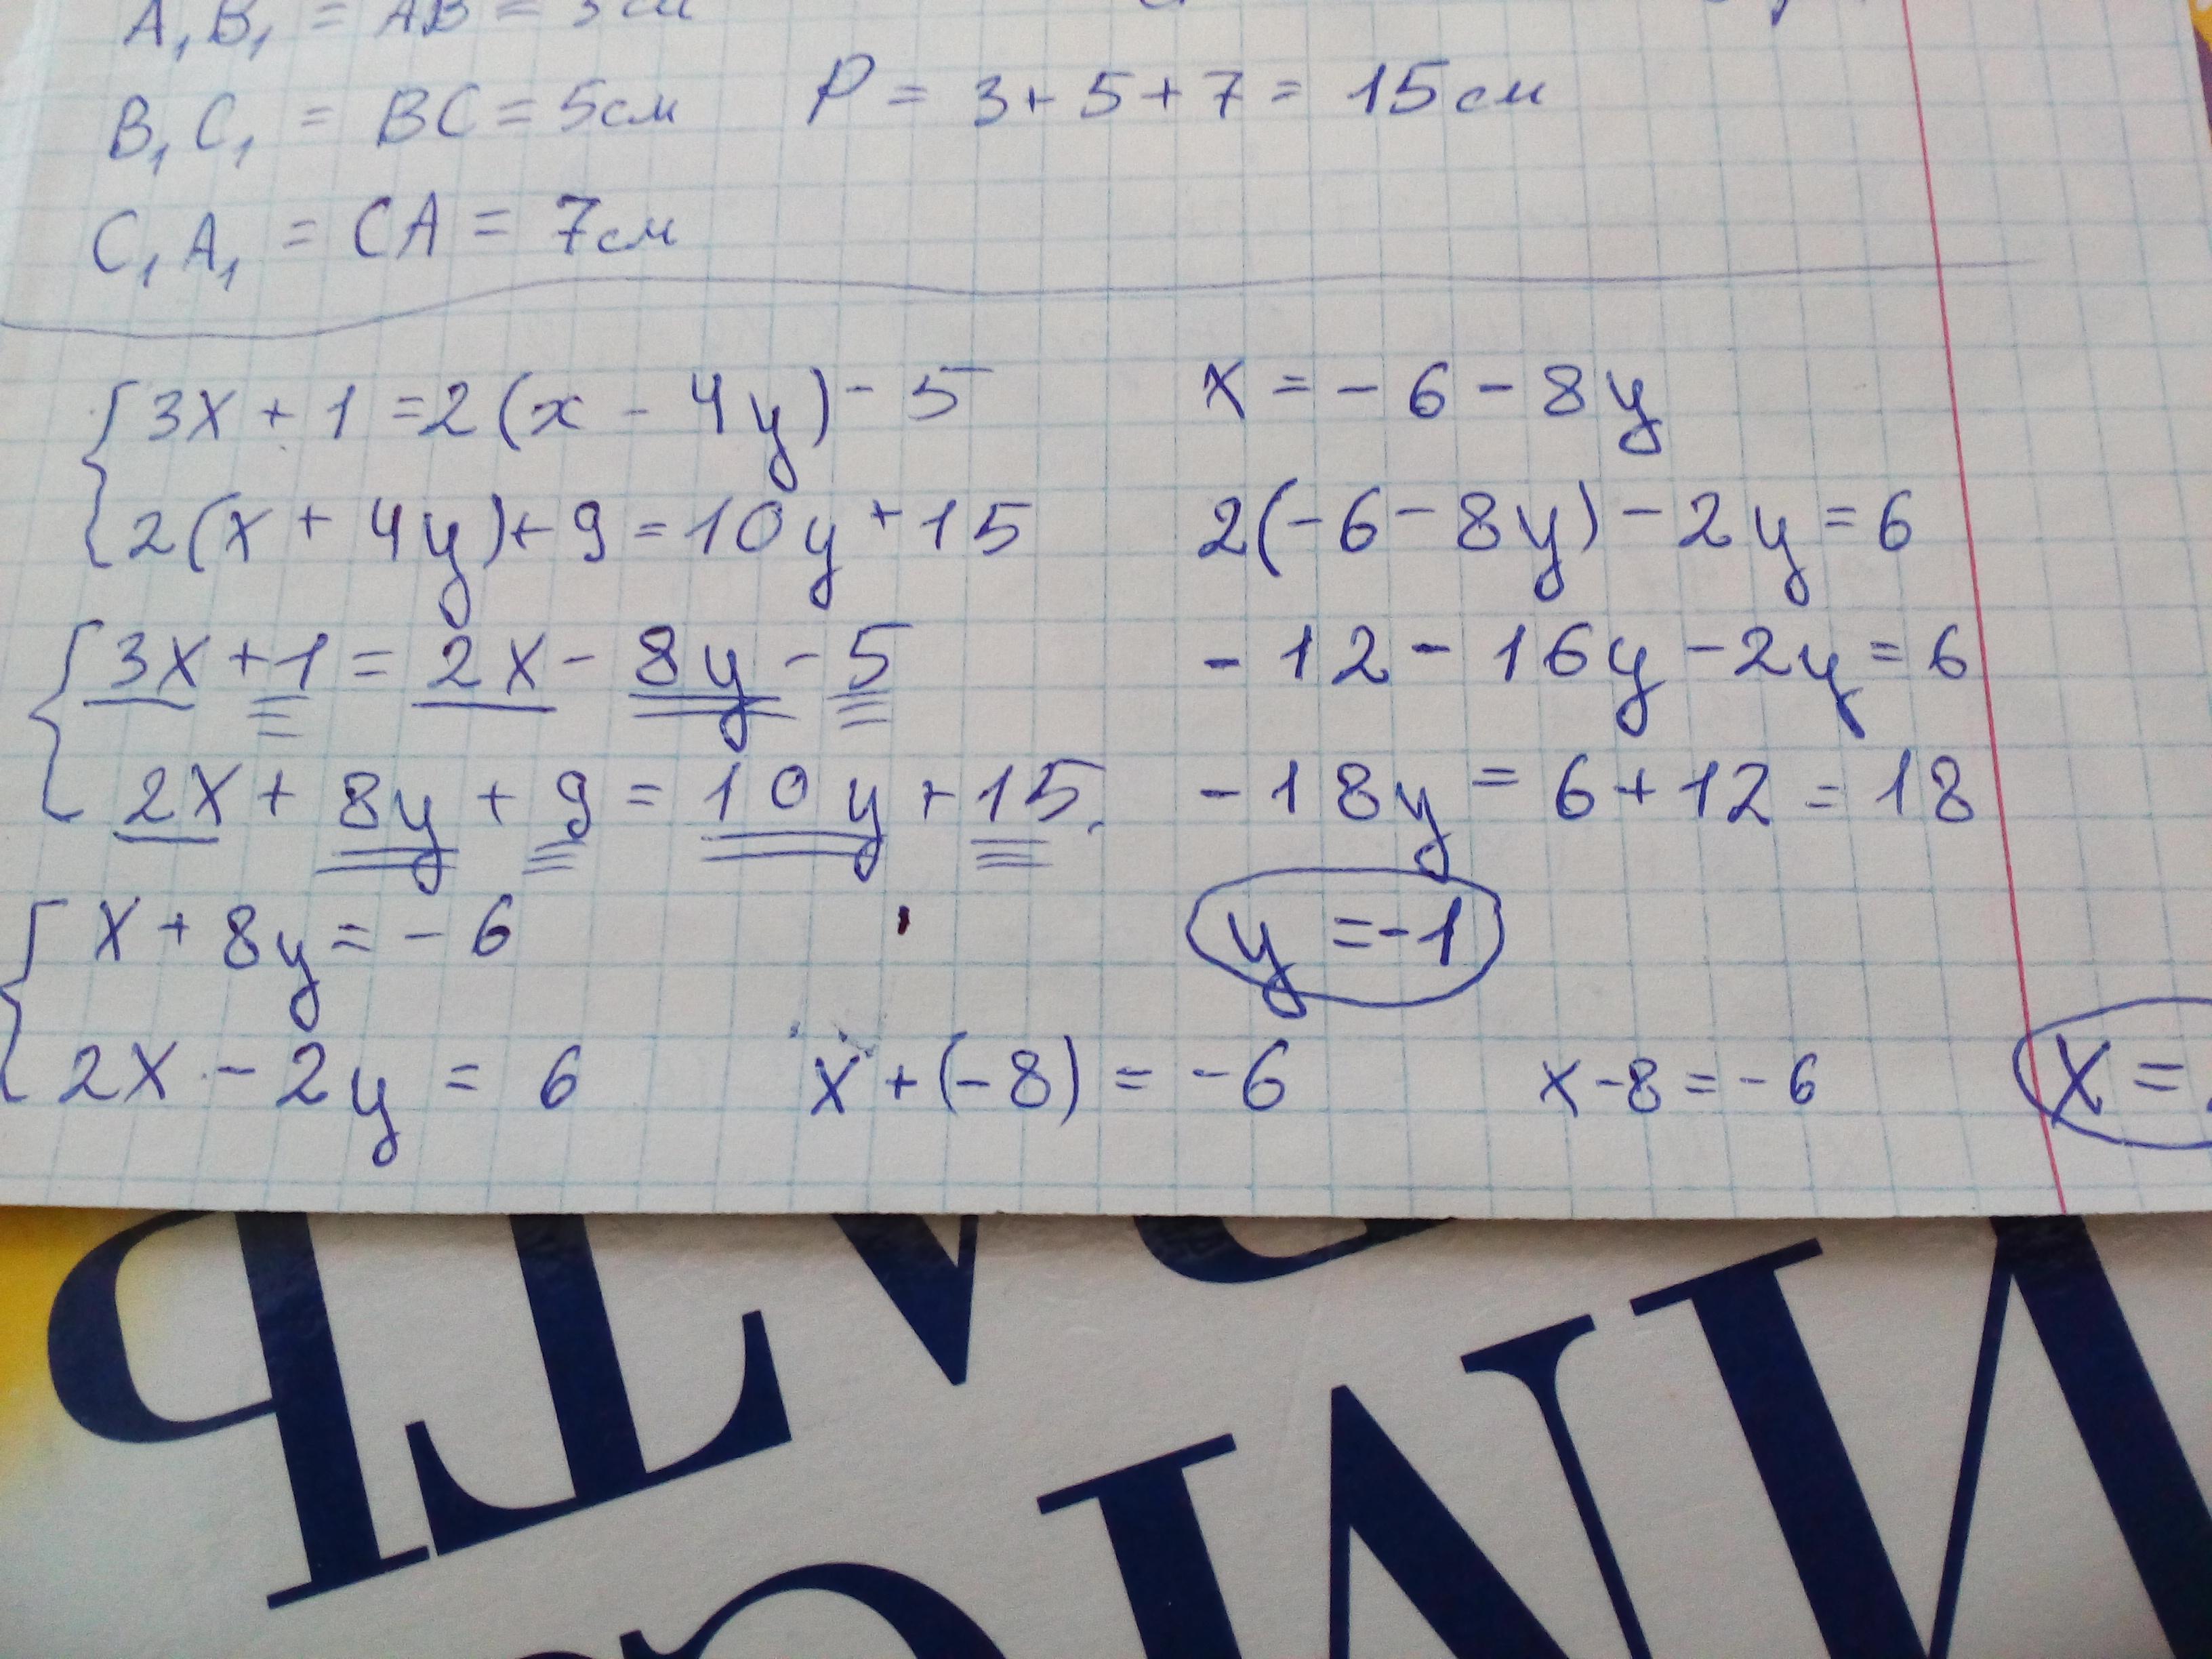 A₁B₁ = AB = 3см
B₁C₁ = BC = 5см P = 3 + 5 + 7 = 15см
C₁A₁ = CA = 7см
3x + 1 = 2(x - 4y) - 5
2(x + 4y) + 9 = 10y + 15
3x + 1 = 2x - 8y - 5
2x + 8y + 9 = 10y + 15
x + 8y = -6
2x - 2y = 6
x = -6 - 8y
2(-6 - 8y) - 2y = 6
-12 - 16y - 2y = 6
-18y = 6 + 12 = 18
y = -1
x + (-8) = -6 x - 8 = -6 x =